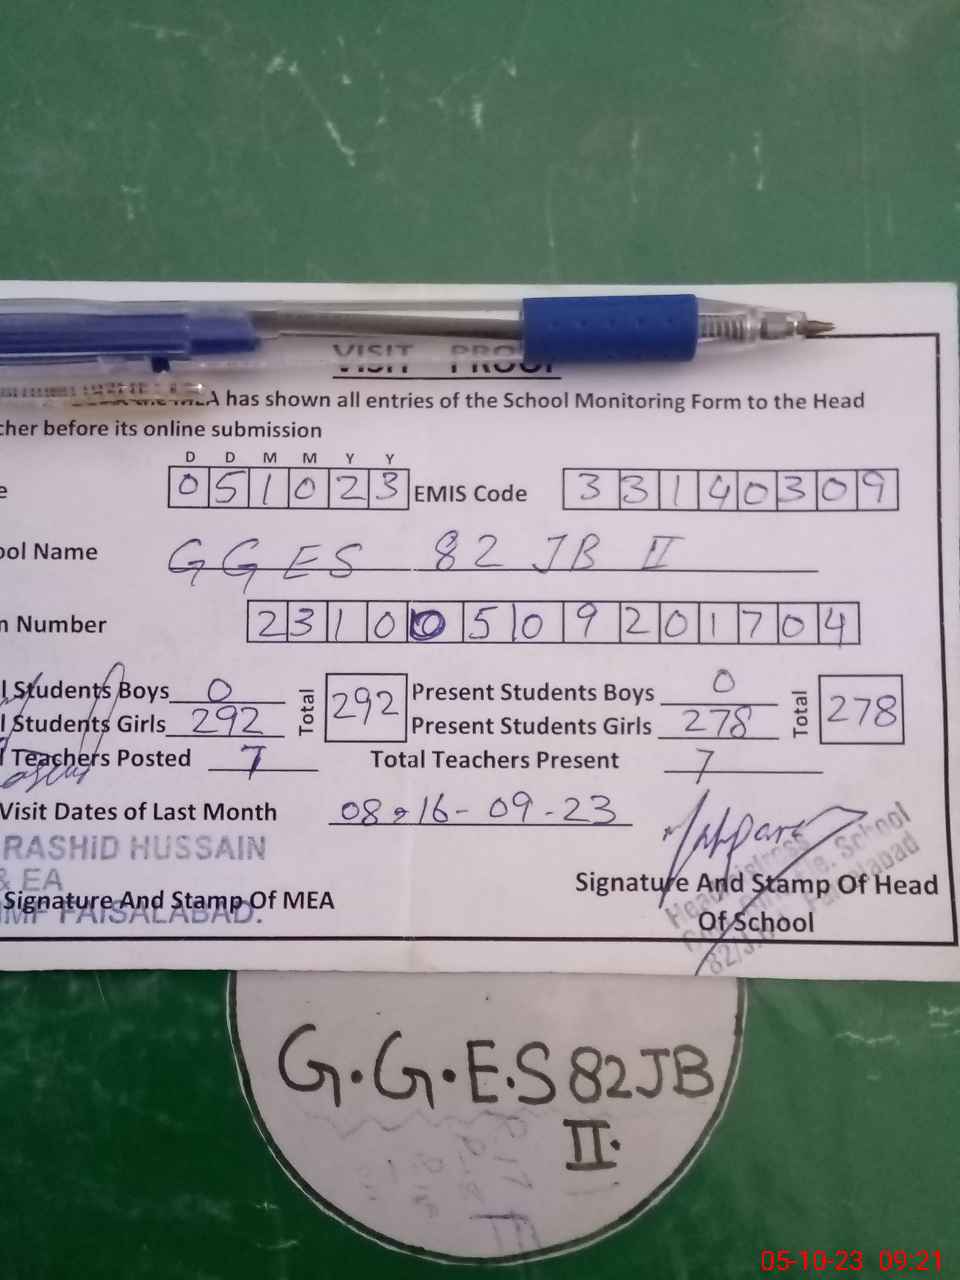 VISIT PROOF
has shown all entries of the School Monitoring Form to the Head
cher before its online submission
D D M M Y Y
e 051023 EMIS Code 33140309
ool Name GGES 82 JB II
n Number 23100509201704
l Students Boys 0 Total 292 Present Students Boys 0 Total 278
l Students Girls 292 Present Students Girls 278
l Teachers Posted 7 Total Teachers Present 7
Visit Dates of Last Month 08,16-09-23
RASHID HUSSAIN
& EA
Signature And Stamp Of MEA Signature And Stamp Of Head
FAISALABAD. Of School
Headmistress
School
82/J.B
G.G.E.S 82JB
II.
05-10-23 09:21